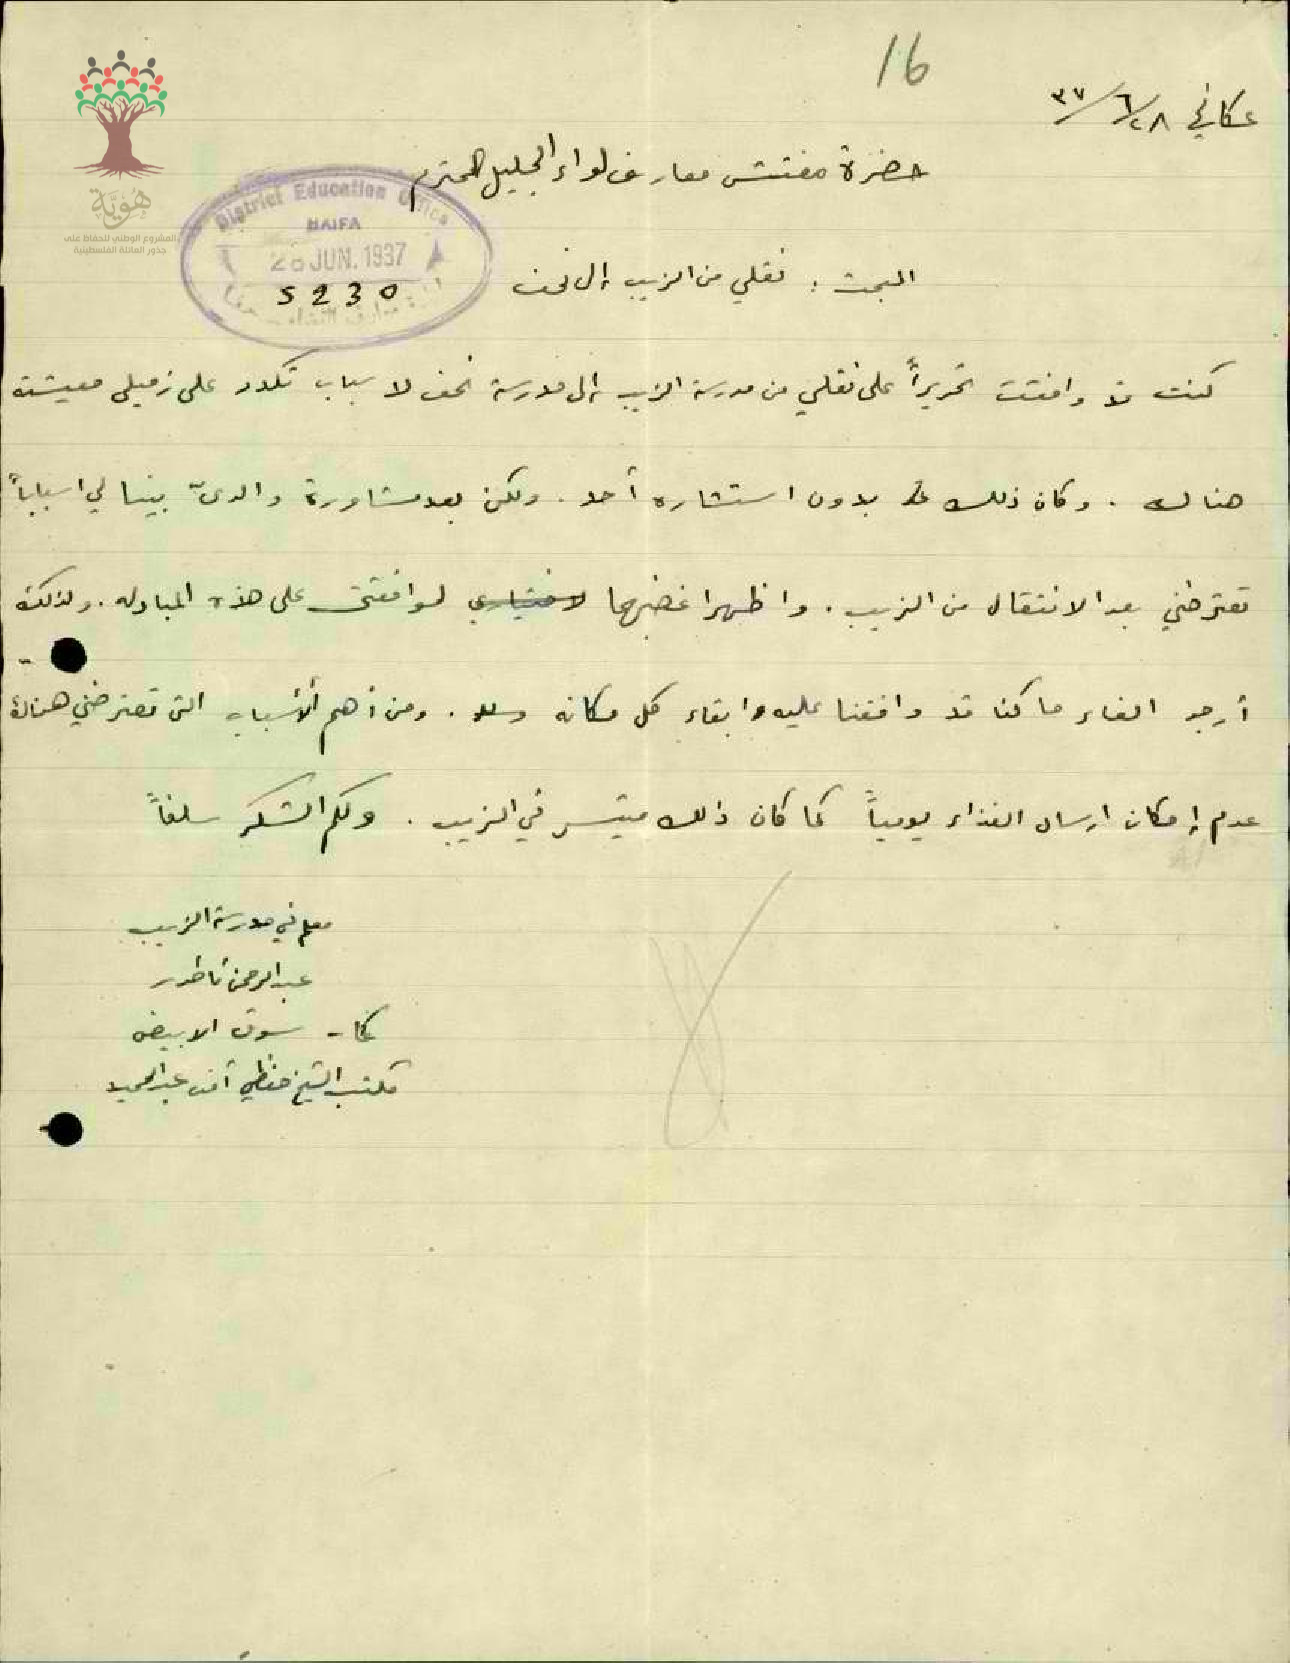 16
عكا في ٢٨/٦/٣٧
حضرة مفتش معارف لواء الجليل المحترم
هُوِيَّة
المشروع الوطني للحفاظ على
جذور العائلة الفلسطينية
District Education Office
HAIFA
28 JUN. 1937
5230
المبحث : نقلي من الزيب إلى نحف
كنت قد وافقت تحريراً على نقلي من مدرسة الزيب الى مدرسة نحف لاسباب تكدر على زميلي معيشته
هناك . وكان ذلك بدون استشارة أحد . ولكن بعد مشاورة والديّ بينا لي اسباباً
تعترضني بعد الانتقال من الزيب . واظهرا غضبهما لموافقتي على هذه المبادله . ولذلك
أرجو الغاء ما كنا قد وافقنا عليه وابقاء كل مكانه . ومن أهم الأسباب التي تعترضني هناك
عدم إمكان ارسال الغذاء يومياً كما كان ذلك متيسر في الزيب . ولكم الشكر سلفاً
معلم في مدرسة الزيب
عبد الرحمن
عكا - سوق الابيض
مكتب الشيخ حفظي عبد الحميد